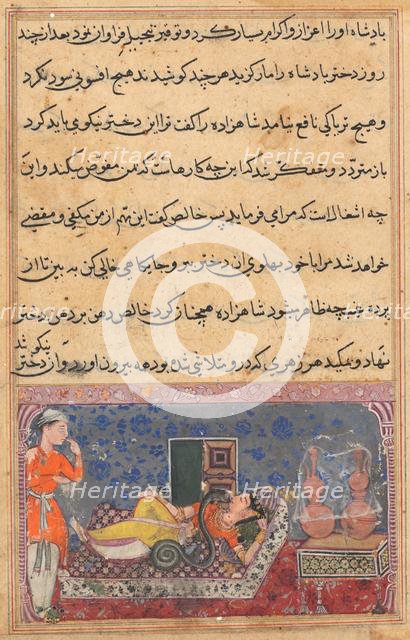 پادشاه او را اعزاز و اکرام بسیار کرد و توقیر و تبجیل فراوان نمود بعد از چند
روز دختر پادشاه را مار گزید هر چند کوشیدند هیچ افسونی سود نکرد
و هیچ تریاکی نافع نیامد شاهزاده را گفت ترا این دختر نیکو می باید کرد
باز متردد و متفکر شد که این چه کارهاست که بمن مفوض میکنند و این
چه اشغال است که مرا می فرماید پس خالص گفت این مهم از من مکفی و مقضی
خواهد شد مرا با خود پهلوی آن دختر ببر و جایگاهی خالی کن به بین تا از
پرده چه ظاهر میشود شاهزاده همچنان کرد خالص دهن بر دهن
نهاد و بمکید هر زهری که در و متلاشی شده بود همه بیرون آورد و از دختر
نیکو شد
Heritage
Heritage
Heritage
Heritage
Heritage
Heritage
Heritage
Heritage